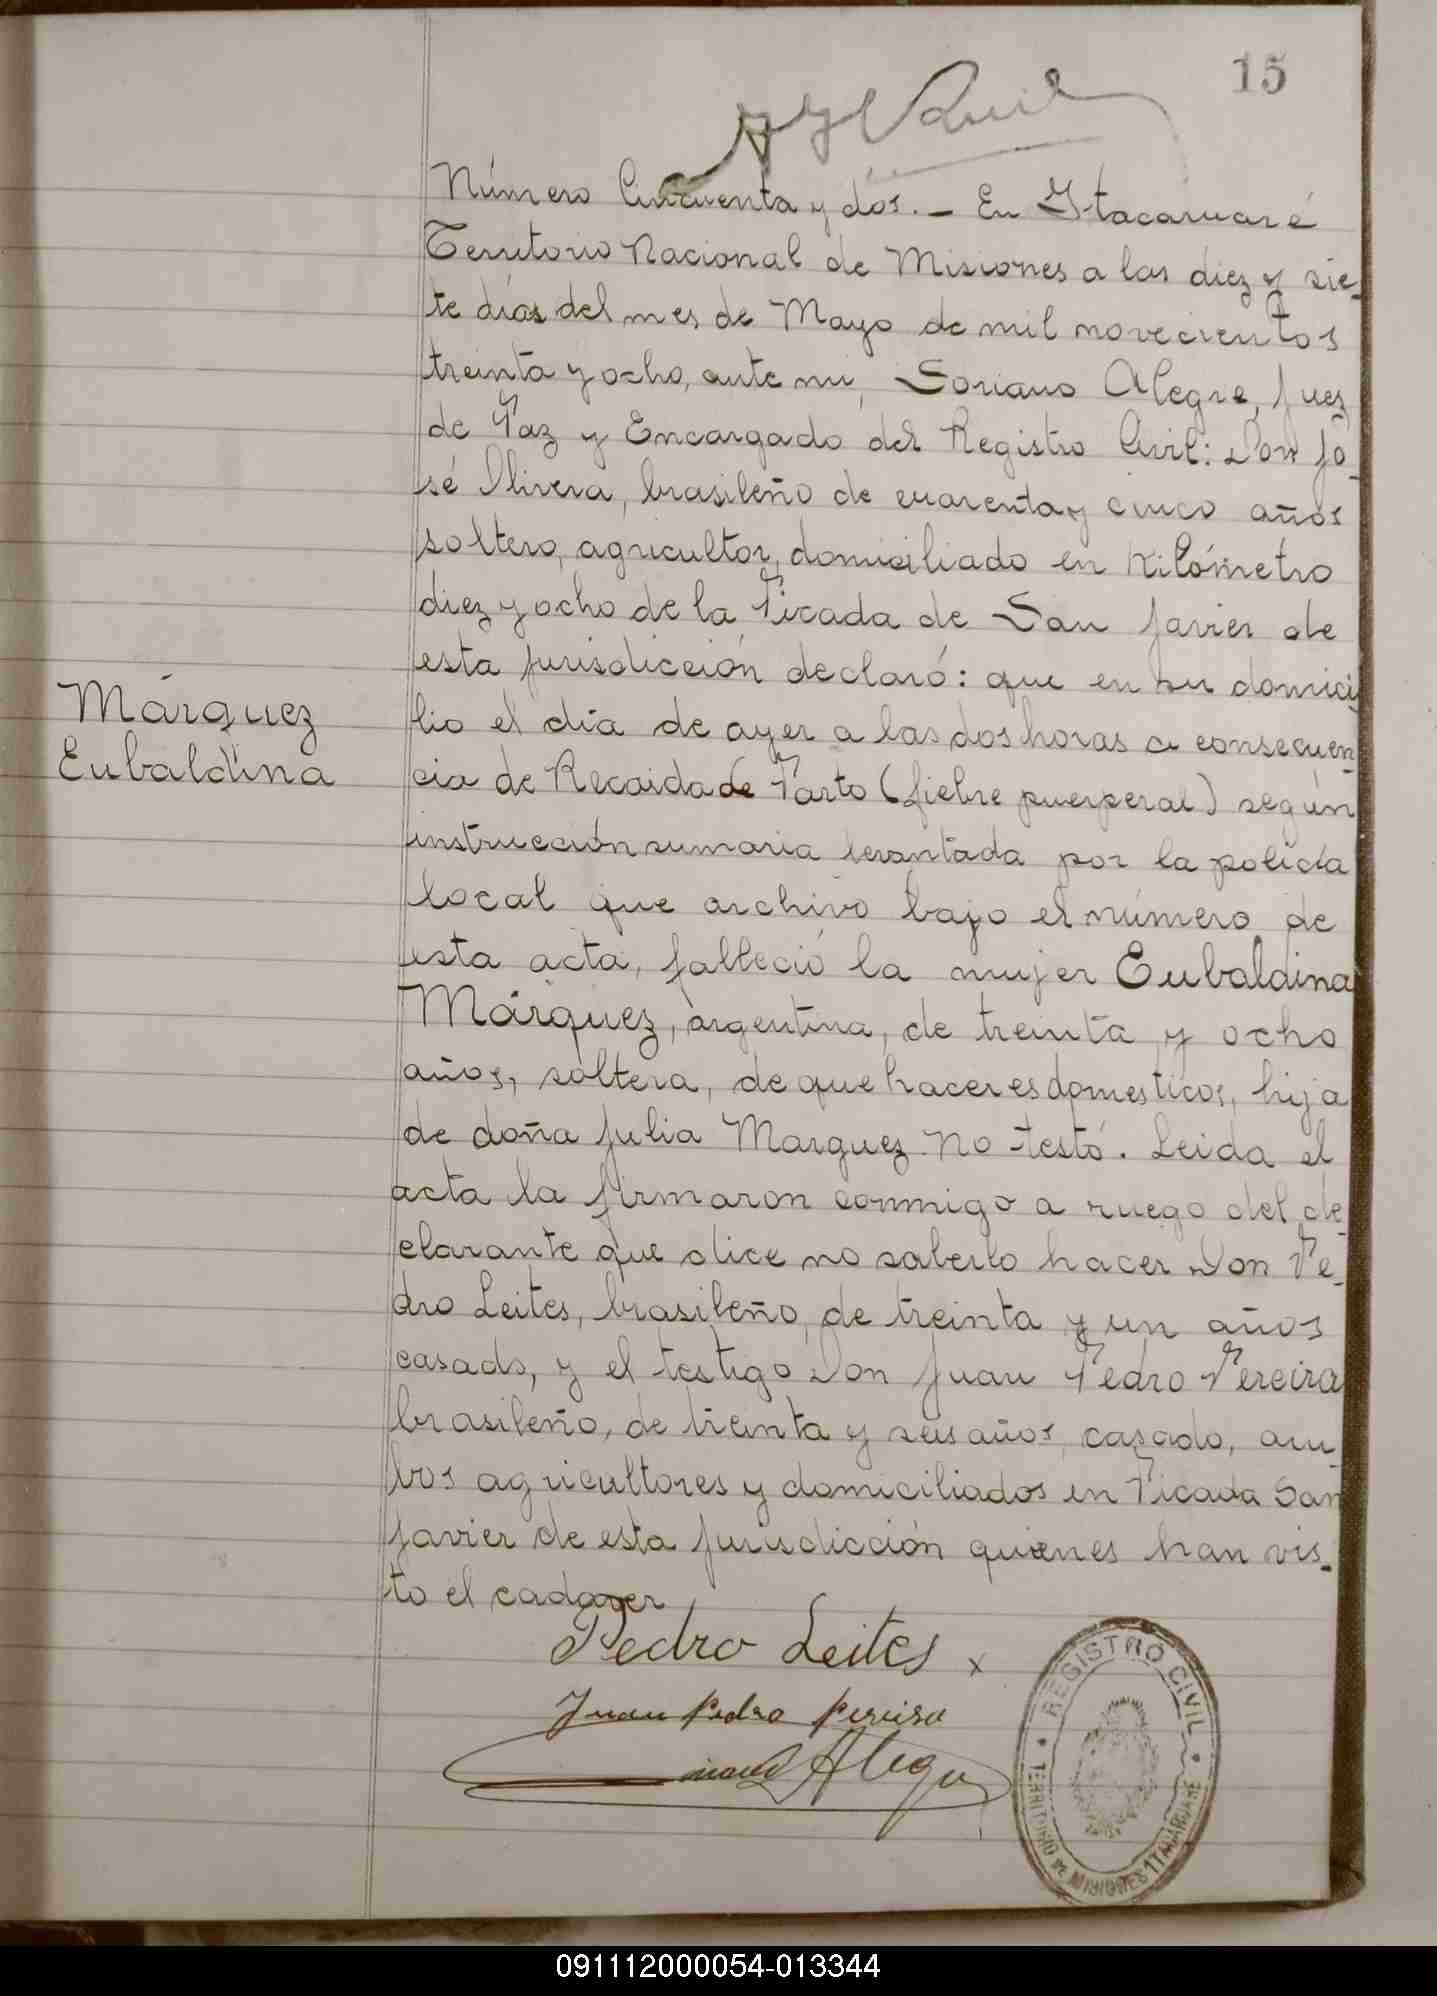 15
Número Cincuenta y dos. — En Itacaruaré
Territorio Nacional de Misiones a los diez y sie-
te días del mes de Mayo de mil novecientos
treinta y ocho, ante mi, Soriano Alegre, Juez
de Paz y Encargado del Registro Civil: Don Jo-
sé Olivera, brasileño de cuarenta y cinco años
soltero, agricultor, domiciliado en Kilómetro
diez y ocho de la Picada de San Javier de
esta jurisdicción declaró: que en su domici-
Márquez
Eubaldina
lio el día de ayer a las dos horas a consecuen-
cia de Recaida de Parto (fiebre puerperal) según
instrucción sumaria levantada por la policía
local que archivo bajo el número de
esta acta, falleció la mujer Eubaldina
Márquez, argentina, de treinta y ocho
años, soltera, de que haceres domesticos, hija
de doña Julia Marquez. No testó. Leida el
acta la firmaron conmigo a ruego del de-
clarante que dice no saberlo hacer Don Pe-
dro Leites, brasileño, de treinta y un años
casado, y el testigo Don Juan Pedro Pereira
brasileño, de treinta y seis años, casado, am-
bos agricultores y domiciliados en Picada San
Javier de esta jurisdicción quienes han vis-
to el cadaver
Pedro Leites x
Juan Pedro Pereira
Alegre
REGISTRO CIVIL
TERRITORIO DE MISIONES ITACARUARÉ
091112000054-013344